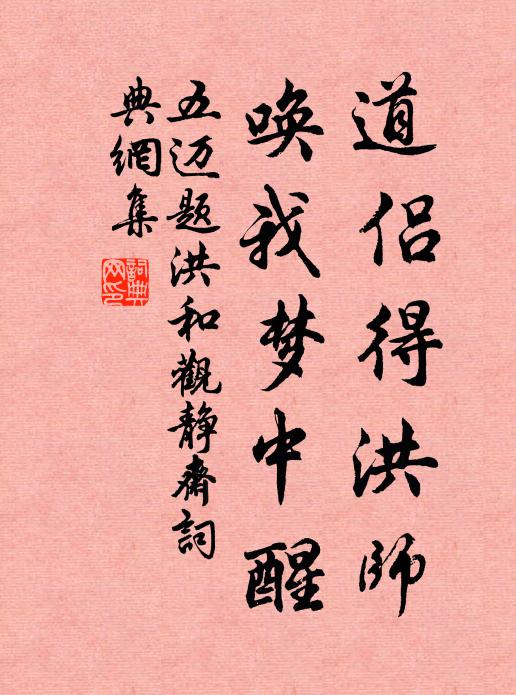 道侣得洪师
唤我梦中醒
五迈题洪和觀静齋詞
典網集
詞典
网印